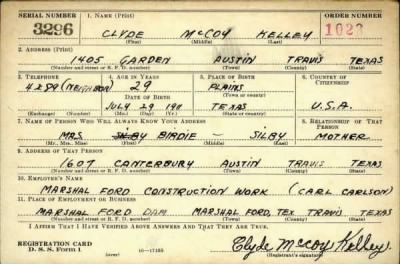 SERIAL NUMBER 1. NAME (Print) ORDER NUMBER
3296 CLYDE McCOY KELLEY 102
(First) (Middle) (Last)
2. ADDRESS (Print)
1405 GARDEN AUSTIN TRAVIS TEXAS
(Number and street or R. F. D. number) (Town) (County) (State)
3. TELEPHONE 4. AGE IN YEARS 5. PLACE OF BIRTH 6. COUNTRY OF CITIZENSHIP
(NEIGHBOR) 29 PLAINS
DATE OF BIRTH (Town or county)
JULY 29 1911 TEXAS U.S.A.
(Exchange) (Number) (Mo.) (Day) (Yr.) (State or country)
7. NAME OF PERSON WHO WILL ALWAYS KNOW YOUR ADDRESS 8. RELATIONSHIP OF THAT PERSON
MRS. BIRDIE — SILBY MOTHER
(Mr., Mrs., Miss) (First) (Middle) (Last)
9. ADDRESS OF THAT PERSON
1607 CANTERBURY AUSTIN TRAVIS TEXAS
(Number and street or R. F. D. number) (Town) (County) (State)
10. EMPLOYER'S NAME
MARSHAL FORD CONSTRUCTION WORK (CARL CARLSON)
11. PLACE OF EMPLOYMENT OR BUSINESS
MARSHAL FORD DAM MARSHAL FORD, TEX TRAVIS TEXAS
(Number and street or R. F. D. number) (Town) (County) (State)
I AFFIRM THAT I HAVE VERIFIED ABOVE ANSWERS AND THAT THEY ARE TRUE.
REGISTRATION CARD Clyde McCoy Kelley
D. S. S. Form 1 (over) 16—17105 (Registrant's signature)